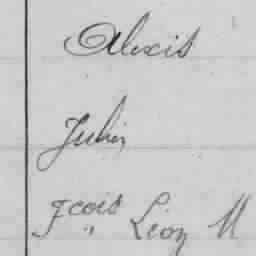 Alexis
Julien
fcois Léon M